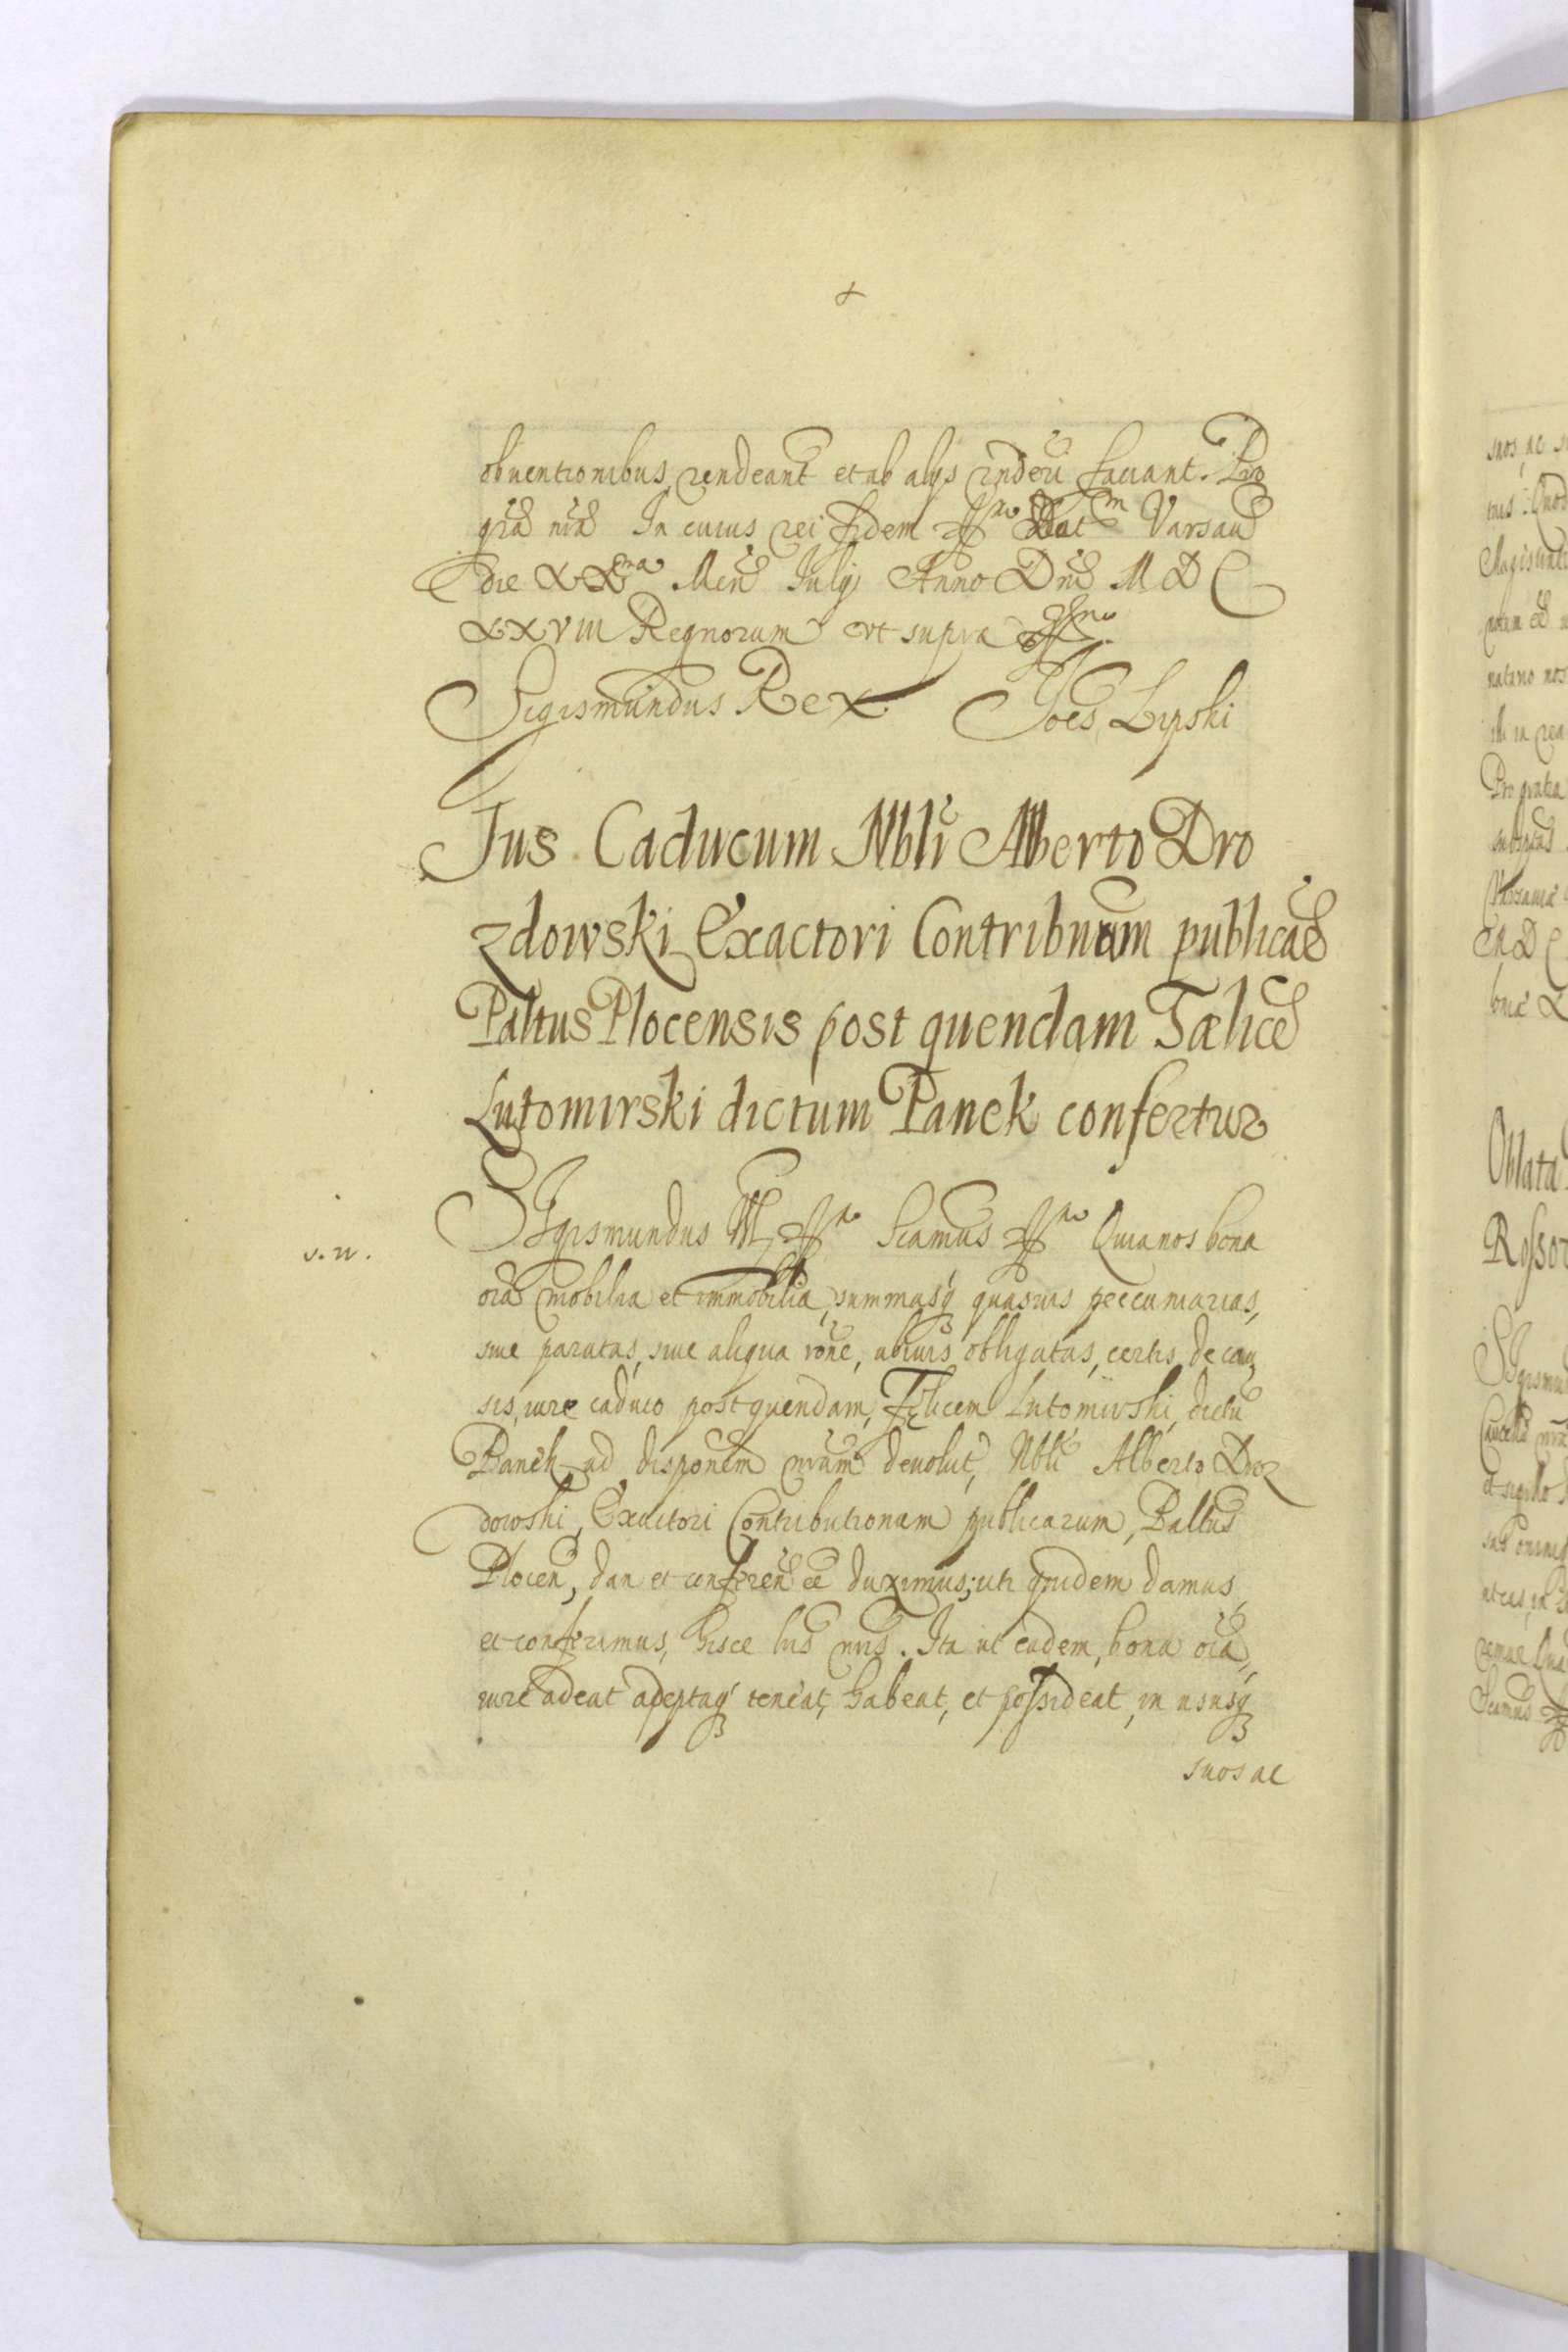 obuentionibus, rendeant et ab alijs renderi faciant. Pro
gra nra In cuius rei fidem Dat Varsau
die XX Men Iulij Anno Dni M D C
XXVIII Regnorum vt supra
Sigismundus Rex Joes Lipski
Jus Caducum Nbli Alberto Dro
zdowski Exactori Contribnum publicaȝ
Paltus Plocensis post quendam Fælice
Lutomirski dictum Panek confertur
s. n.
SIgismundus III Scamus Quia nos bona
oia mobilia et immobilia, summasq quasuis peccuniarias,
siue paratas, siue aliqua rone, ubiuis obligatas, certis de cau
sis, iure caduco post quendam, Fęlicem Lutomirski, dictu
Panek ad disponem nram deuolut, Nbli Alberto Droz
dowski, Exactori Contributionum publicarum, Paltus
Plocen, dan et conferen ee duximus; uti quidem damus,
et conferimus, hisce lris nris. Ita ut eadem, bona oia,
iure adeat adeptaq teneat, habeat, et possideat, in ususq
suos ac